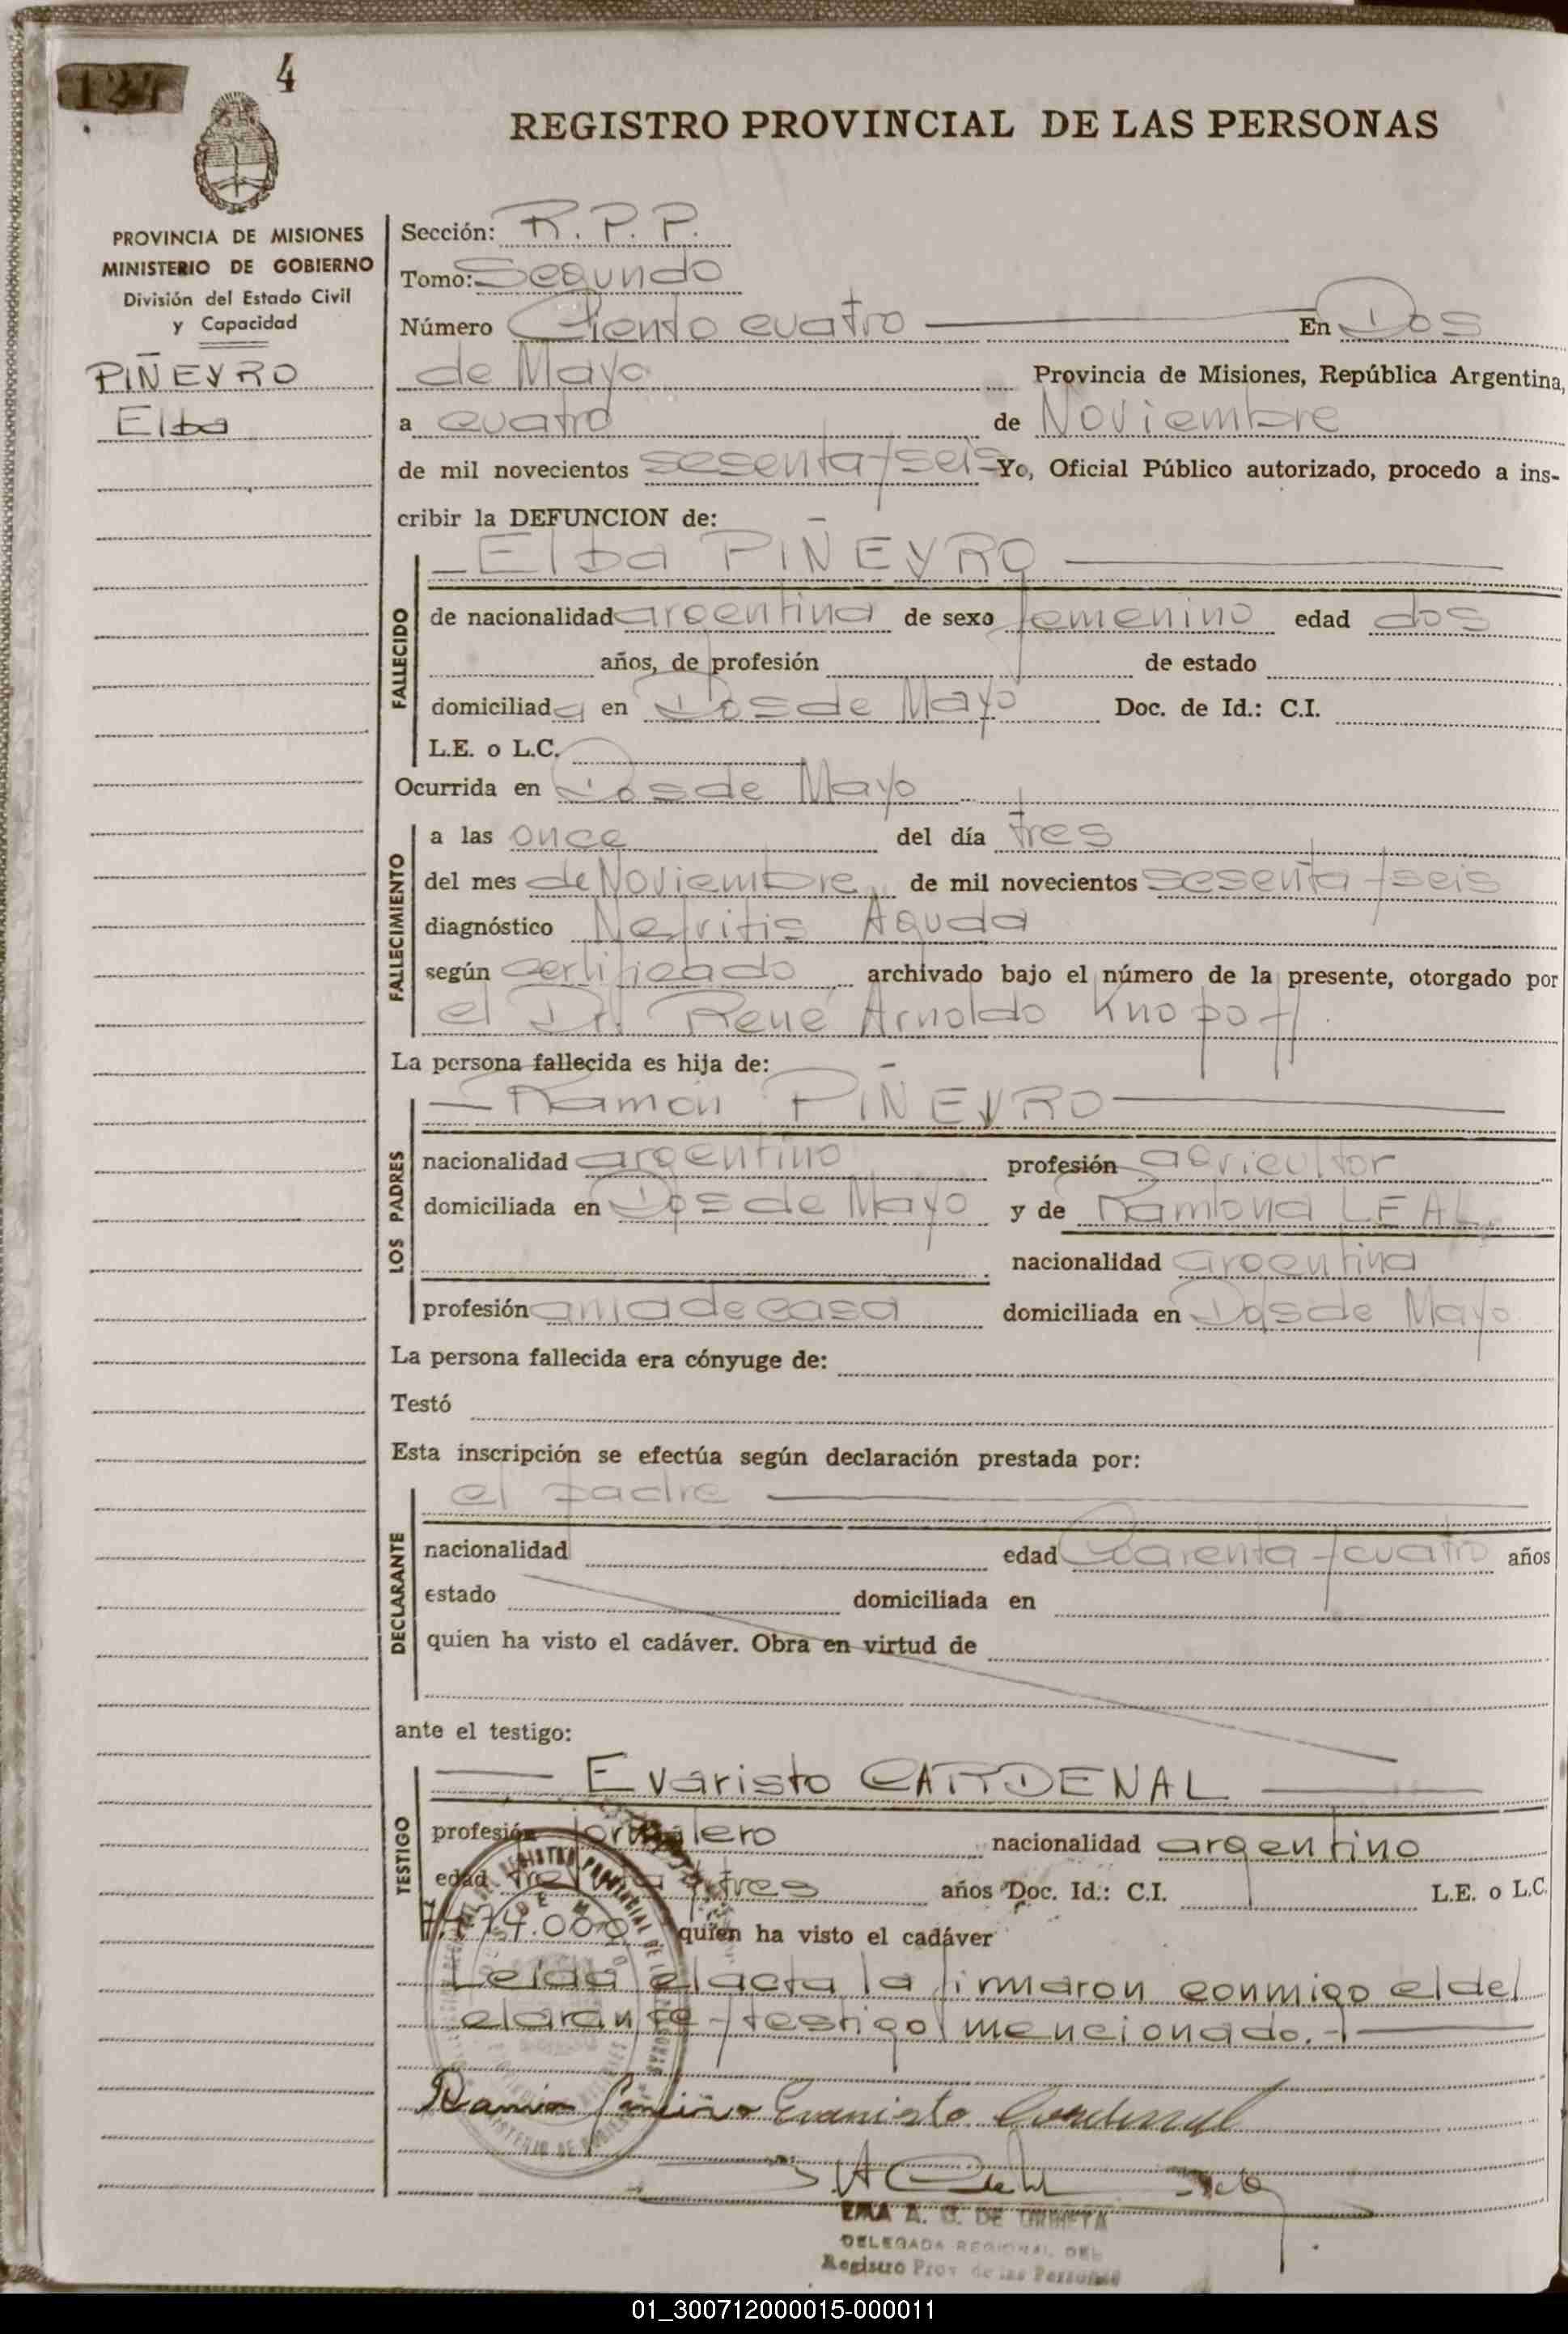 4
REGISTRO PROVINCIAL DE LAS PERSONAS
PROVINCIA DE MISIONES
MINISTERIO DE GOBIERNO
División del Estado Civil
y Capacidad
PIÑEYRO
Elba
Sección: R. P. P.
Tomo: Segundo
Número Ciento cuatro En Dos
de Mayo Provincia de Misiones, República Argentina,
a cuatro de Noviembre
de mil novecientos sesenta y seis Yo, Oficial Público autorizado, procedo a ins-
cribir la DEFUNCION de:
Elba PIÑEYRO
FALLECIDO
de nacionalidad argentina de sexo femenino edad dos
años, de profesión de estado
domiciliada en Dos de Mayo Doc. de Id.: C.I.
L.E. o L.C.
Ocurrida en Dos de Mayo
FALLECIMIENTO
a las once del día tres
del mes de Noviembre de mil novecientos sesenta y seis
diagnóstico Nefritis Aguda
según certificado archivado bajo el número de la presente, otorgado por
el Dr. René Arnoldo Knopoff
La persona fallecida es hija de:
Ramón PIÑEYRO
LOS PADRES
nacionalidad argentino profesión agricultor
domiciliada en Dos de Mayo y de Ramona LEAL
nacionalidad argentina
profesión ama de casa domiciliada en Dos de Mayo
La persona fallecida era cónyuge de:
Testó
Esta inscripción se efectúa según declaración prestada por:
el padre
DECLARANTE
nacionalidad edad Cuarenta y cuatro años
estado domiciliada en
quien ha visto el cadáver. Obra en virtud de
ante el testigo:
Evaristo CARDENAL
TESTIGO
profesión Jornalero nacionalidad argentino
edad treinta y tres años Doc. Id.: C.I. L.E. o L.C.
quien ha visto el cadáver
Leida el acta la firmaron conmigo el del
clarante y testigo mencionado.-
Ramón Evaristo Cardenal
EMA A. DE
DELEGADA REGIONAL DEL
Registro Prov. de las Personas
01_300712000015-000011